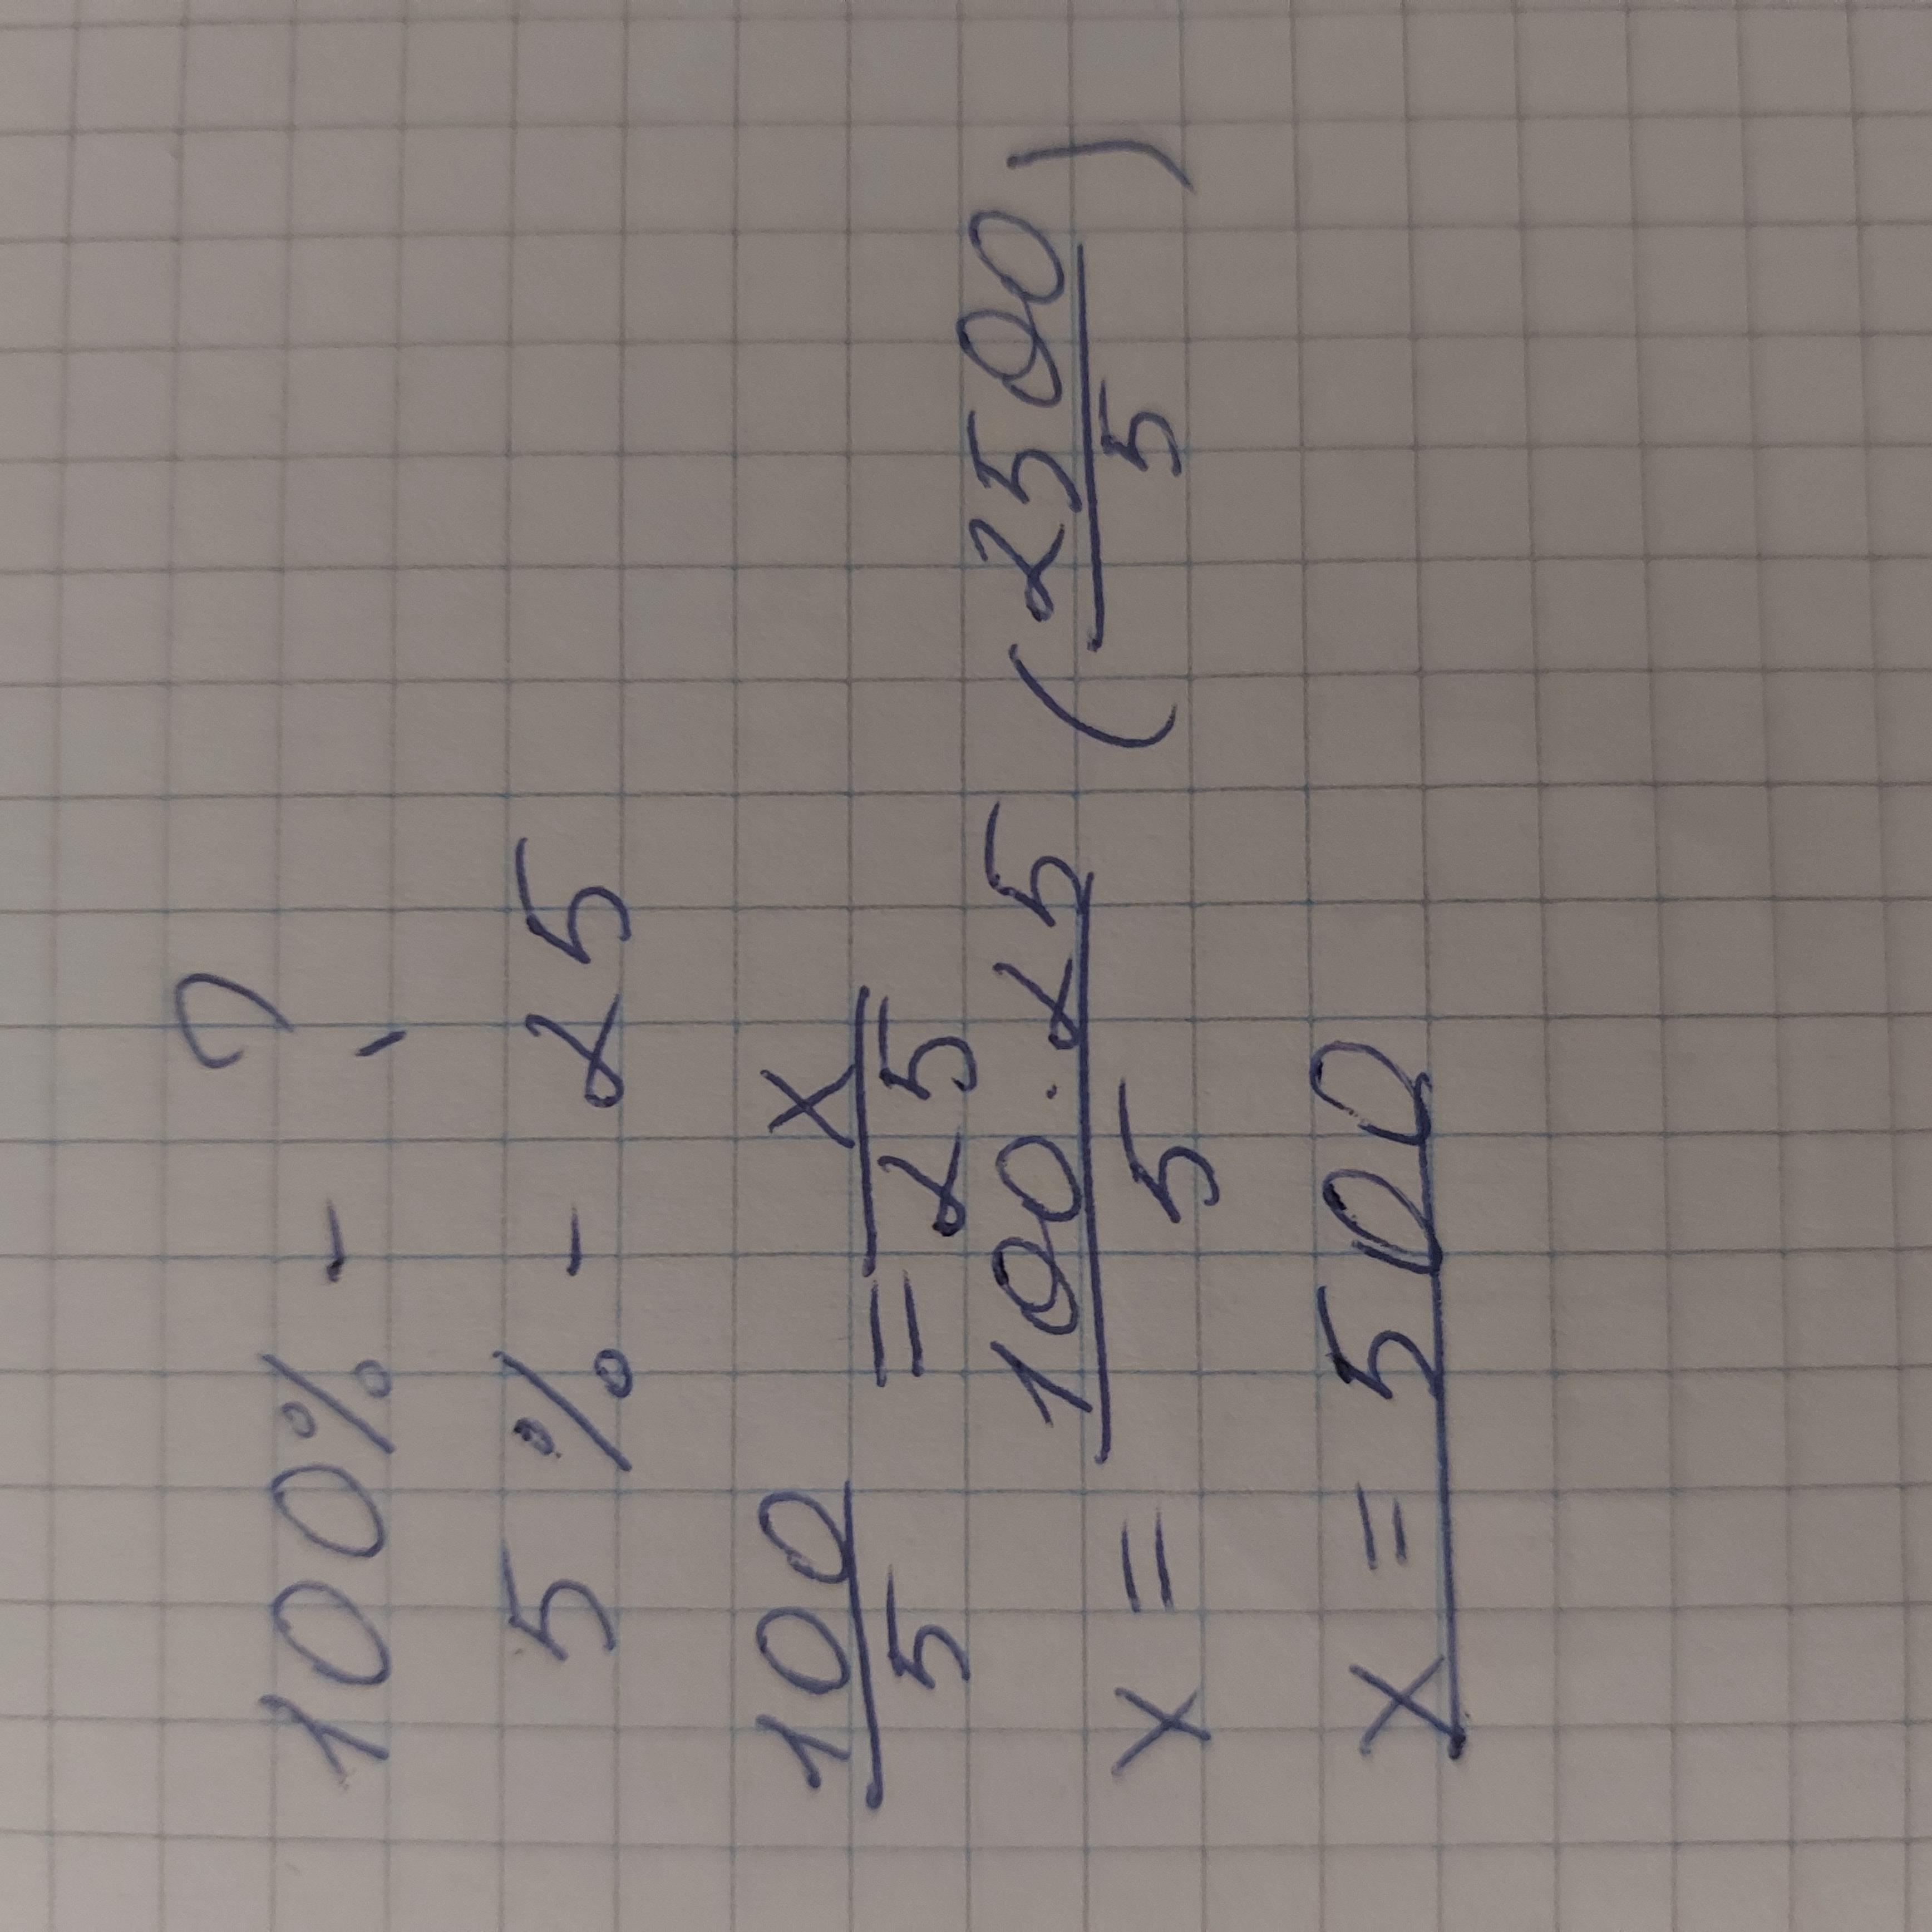 100% - ?
5% - 25
100/5 = x/25
x = 100·25/5 (2500/5)
x = 500